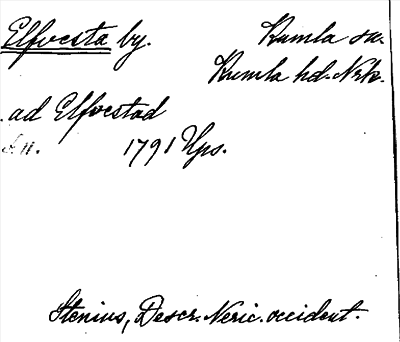 Elfvesta by. Kumla sn.
Kumla hd. Nrke.
ad Elfvestad
s. 11. 1791 Ups.
Stenius, Descr. Neric. occident.